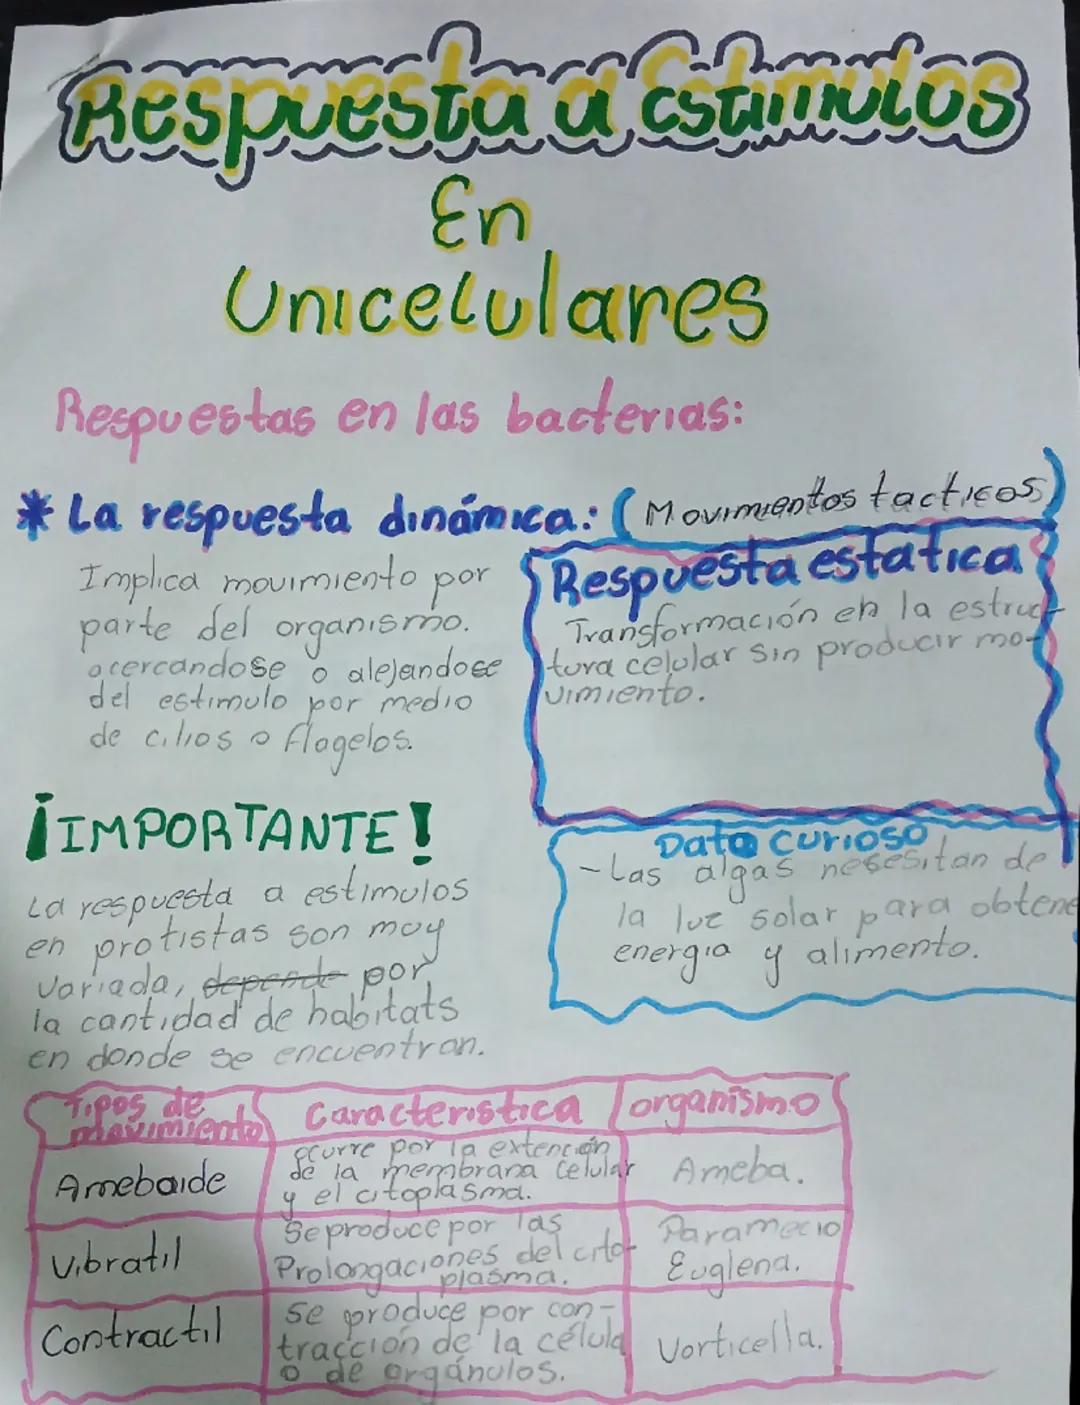 Respuesta a Estimulos
En
Unicelulares
Respuestas en las bacterias:
* La respuesta dinámica: (Movimientos tacticos)
Implica movimiento por
parte del organismo.
acercandose o alejandose
del estimulo por medio
de cilios o flagelos.
Respuesta estatica
Transformación en la estruc-
tura celular sin producir mo-
vimiento.
¡IMPORTANTE!
La respuesta a estimulos
en protistas son muy
variada, depende por
la cantidad de habitats
en donde se encuentran.
Dato curioso
-Las algas nesesitan de
la luz solar para obtene
energia y alimento.
Tipos de
movimiento
Caracteristica
organismo
Amebaide
ocurre por la extención
de la membrana celular
y el citoplasma.
Ameba.
Vibratil
Se produce por las
Prolongaciones del cito-
plasma.
Paramecio
Euglena.
Contractil
Se produce por con-
tracción de la célula
o de orgánulos.
Vorticella.